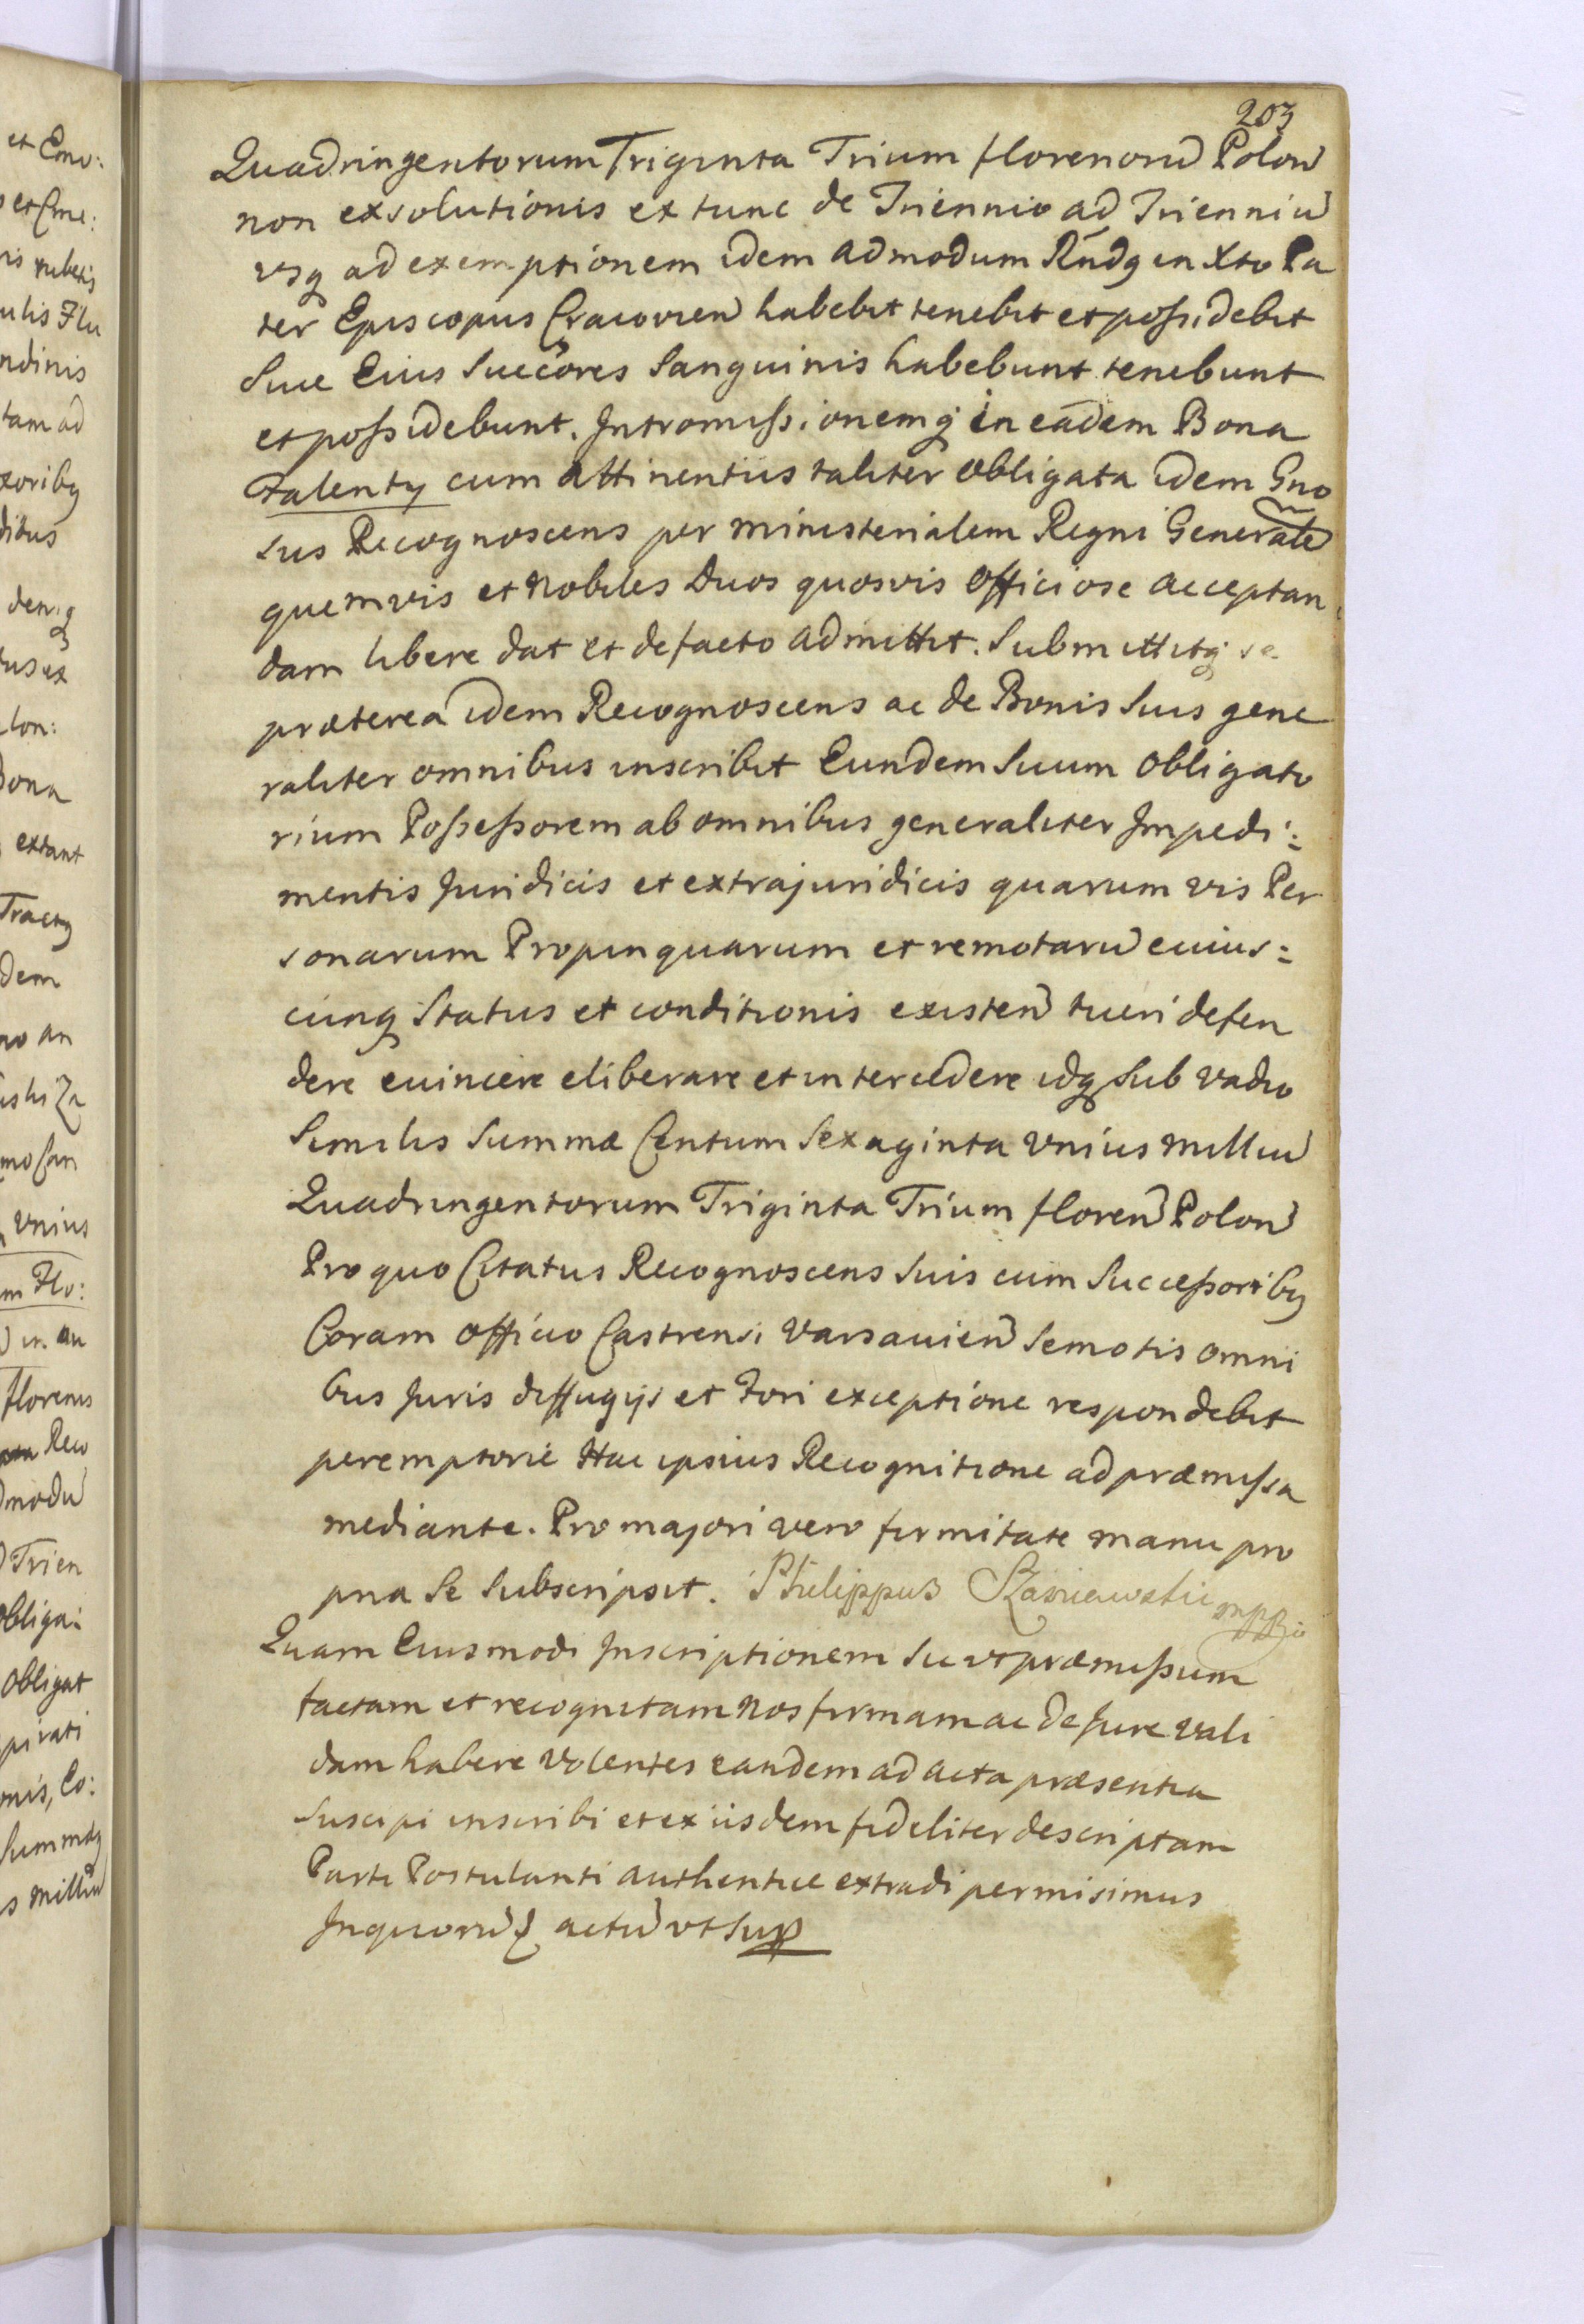 203
Quadringentorum Triginta Trium florenorũ Polon̄
non exsolutionis extunc de Triennio ad Trienniũ
vsq; ad exemptionem idem admodum Rn̄dq in Xto Pa
ter Episcopus Cracovien̄ habebit tenebit et possidebit
Siue Eius Succōres Sanguinis habebunt tenebunt
et possidebunt. Intromissionemq; in eadem Bona
Falenty cum attinentiis taliter obligata idem Gno
sus Recognoscens per ministerialem Regni Generalē
quemvis et nobiles Duos quosvis officiose acceptan
dam libere dat et defacto admittit. Submittitq; se
præterea idem Recognoscens ac de Bonis Suis gene
raliter omnibus inscribit Eundem Suum obligato
rium Possessorem ab omnibus generaliter Impedi:
mentis Juridicis et extrajuridicis quarumvis Per
sonarum Propinquarum et remotarũ cuius:
cunq; Status et conditionis existen̄ tueri defen
dere euincere eliberare et intercedere idq; Sub vadio
Similis Summæ Centum Sexaginta vnius milliũ
Quadringentorum Triginta Trium floren̄ Polon̄
Pro quo Citatus Recognoscens Suis cum Successoribq
Coram officio Castrensi Varsauien̄ Semotis omni
bus Juris diffugijs et Fori exceptione respondebit
peremptorie Hac ipsius Recognitione ad præmissa
mediante. Pro majori vero firmitate manu pro
pria Se Subscripsit. Philippus mppia
Quam Eiusmodi Inscriptionem Sic vt præmissum
factam et recognitam nos firmam ac de Jure vali
dam habere volentes eandem ad acta præsentia
Suscipi inscribi et ex iisdem fideliter descriptam
Parti Postulanti authentice extradi permisimus
Inquorũ actũ vt Sup